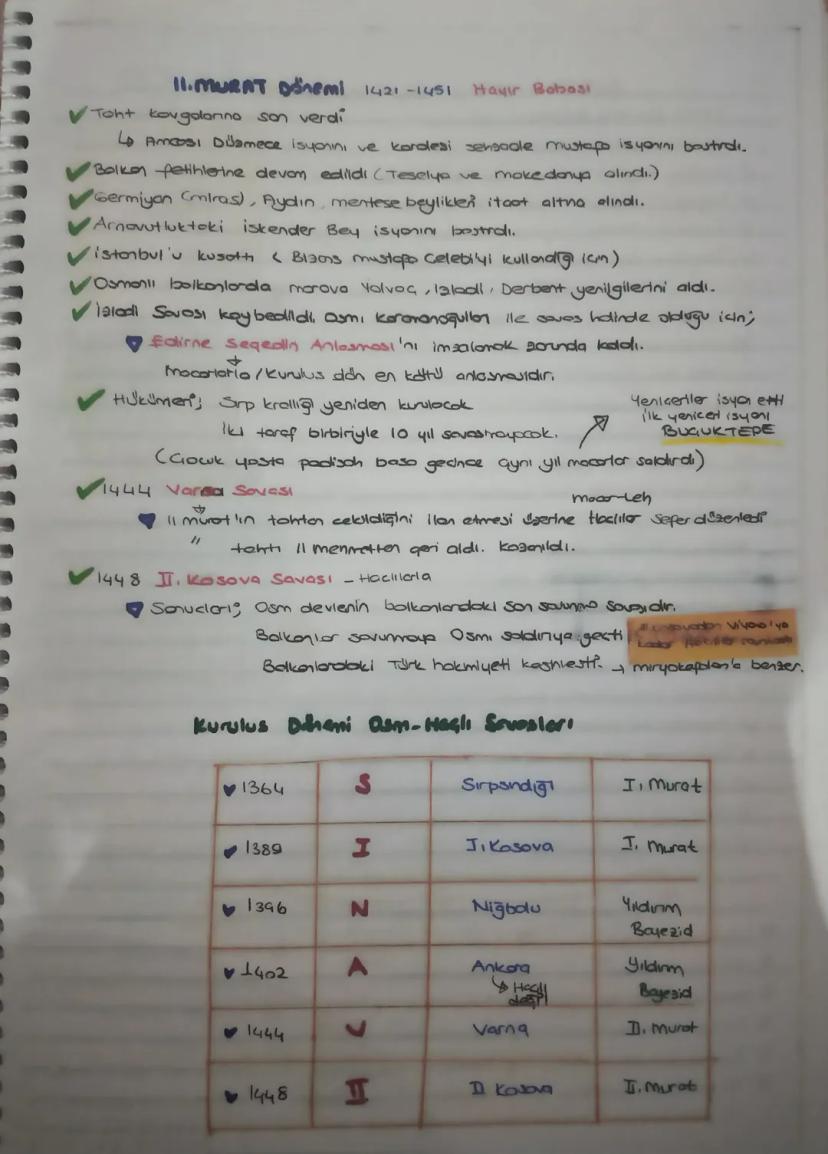 II.MURAT Dönemi 1421-1451 Hayır Babası
✓ Taht kavgalarına son verdi
↳ Amcası Düzmece isyanını ve kardeşi şehzade mustafa isyanını bastırdı.
✓ Balkan fetihlerine devam edildi (Teselya ve makedonya alındı.)
✓ Germiyan (miras), Aydın, menteşe beylikleri itaat altına alındı.
✓ Arnavutluktaki iskender Bey isyanını bastırdı.
✓ istanbul'u kuşattı ( Bizans mustafa Çelebi'yi kullandığı için)
✓ Osmanlı balkanlarda morova Yalvaç, izladi, Derbent yenilgilerini aldı.
✓ izladi Savaşı kaybedildi, osmı karamanoğulları ile savaş halinde olduğu için;
Edirne Segedin Anlaşması'nı imzalamak zorunda kaldı.
Macarlarla / kuruluş dön en kötü anlaşmasıdır.
✓ Hükümleri; Sırp krallığı yeniden kurulacak
iki taraf birbiriyle 10 yıl savaşmayacak.
Yeniçeriler isyan etti
ilk yeniçeri isyanı
BUÇUKTEPE
(Çocuk yaşta padişah başa geçince aynı yıl macarlar saldırdı)
✓ 1444 Varna Savaşı
macar-Leh
II murat'ın tahtan çekildiğini ilan etmesi üzerine Haçlılar sefer düzenledi
" tahtı II mehmetten geri aldı. kazanıldı.
✓ 1448 II. Kosova Savaşı - Haçlılarla
Sonuçları; Osm devlenin balkanlardaki son savunma savaşıdır.
Balkanlar savunmaya Osmı saldırıya geçti
Viyana'ya
kadar
Balkanlardaki Türk hakmiyeti kesinleşti. → miryokefalon'a benzer.
Kuruluş Dönemi Osm-Haçlı Savaşları
1364 S Sırpsındığı I. Murat
1389 I I. Kosova I. Murat
1396 N Niğbolu Yıldırım
Bayezid
1402 A Ankara Yıldırım
↳ Haçlı Bayezid
değil
1444 V Varna II. Murat
1448 II II Kosova II. Murat